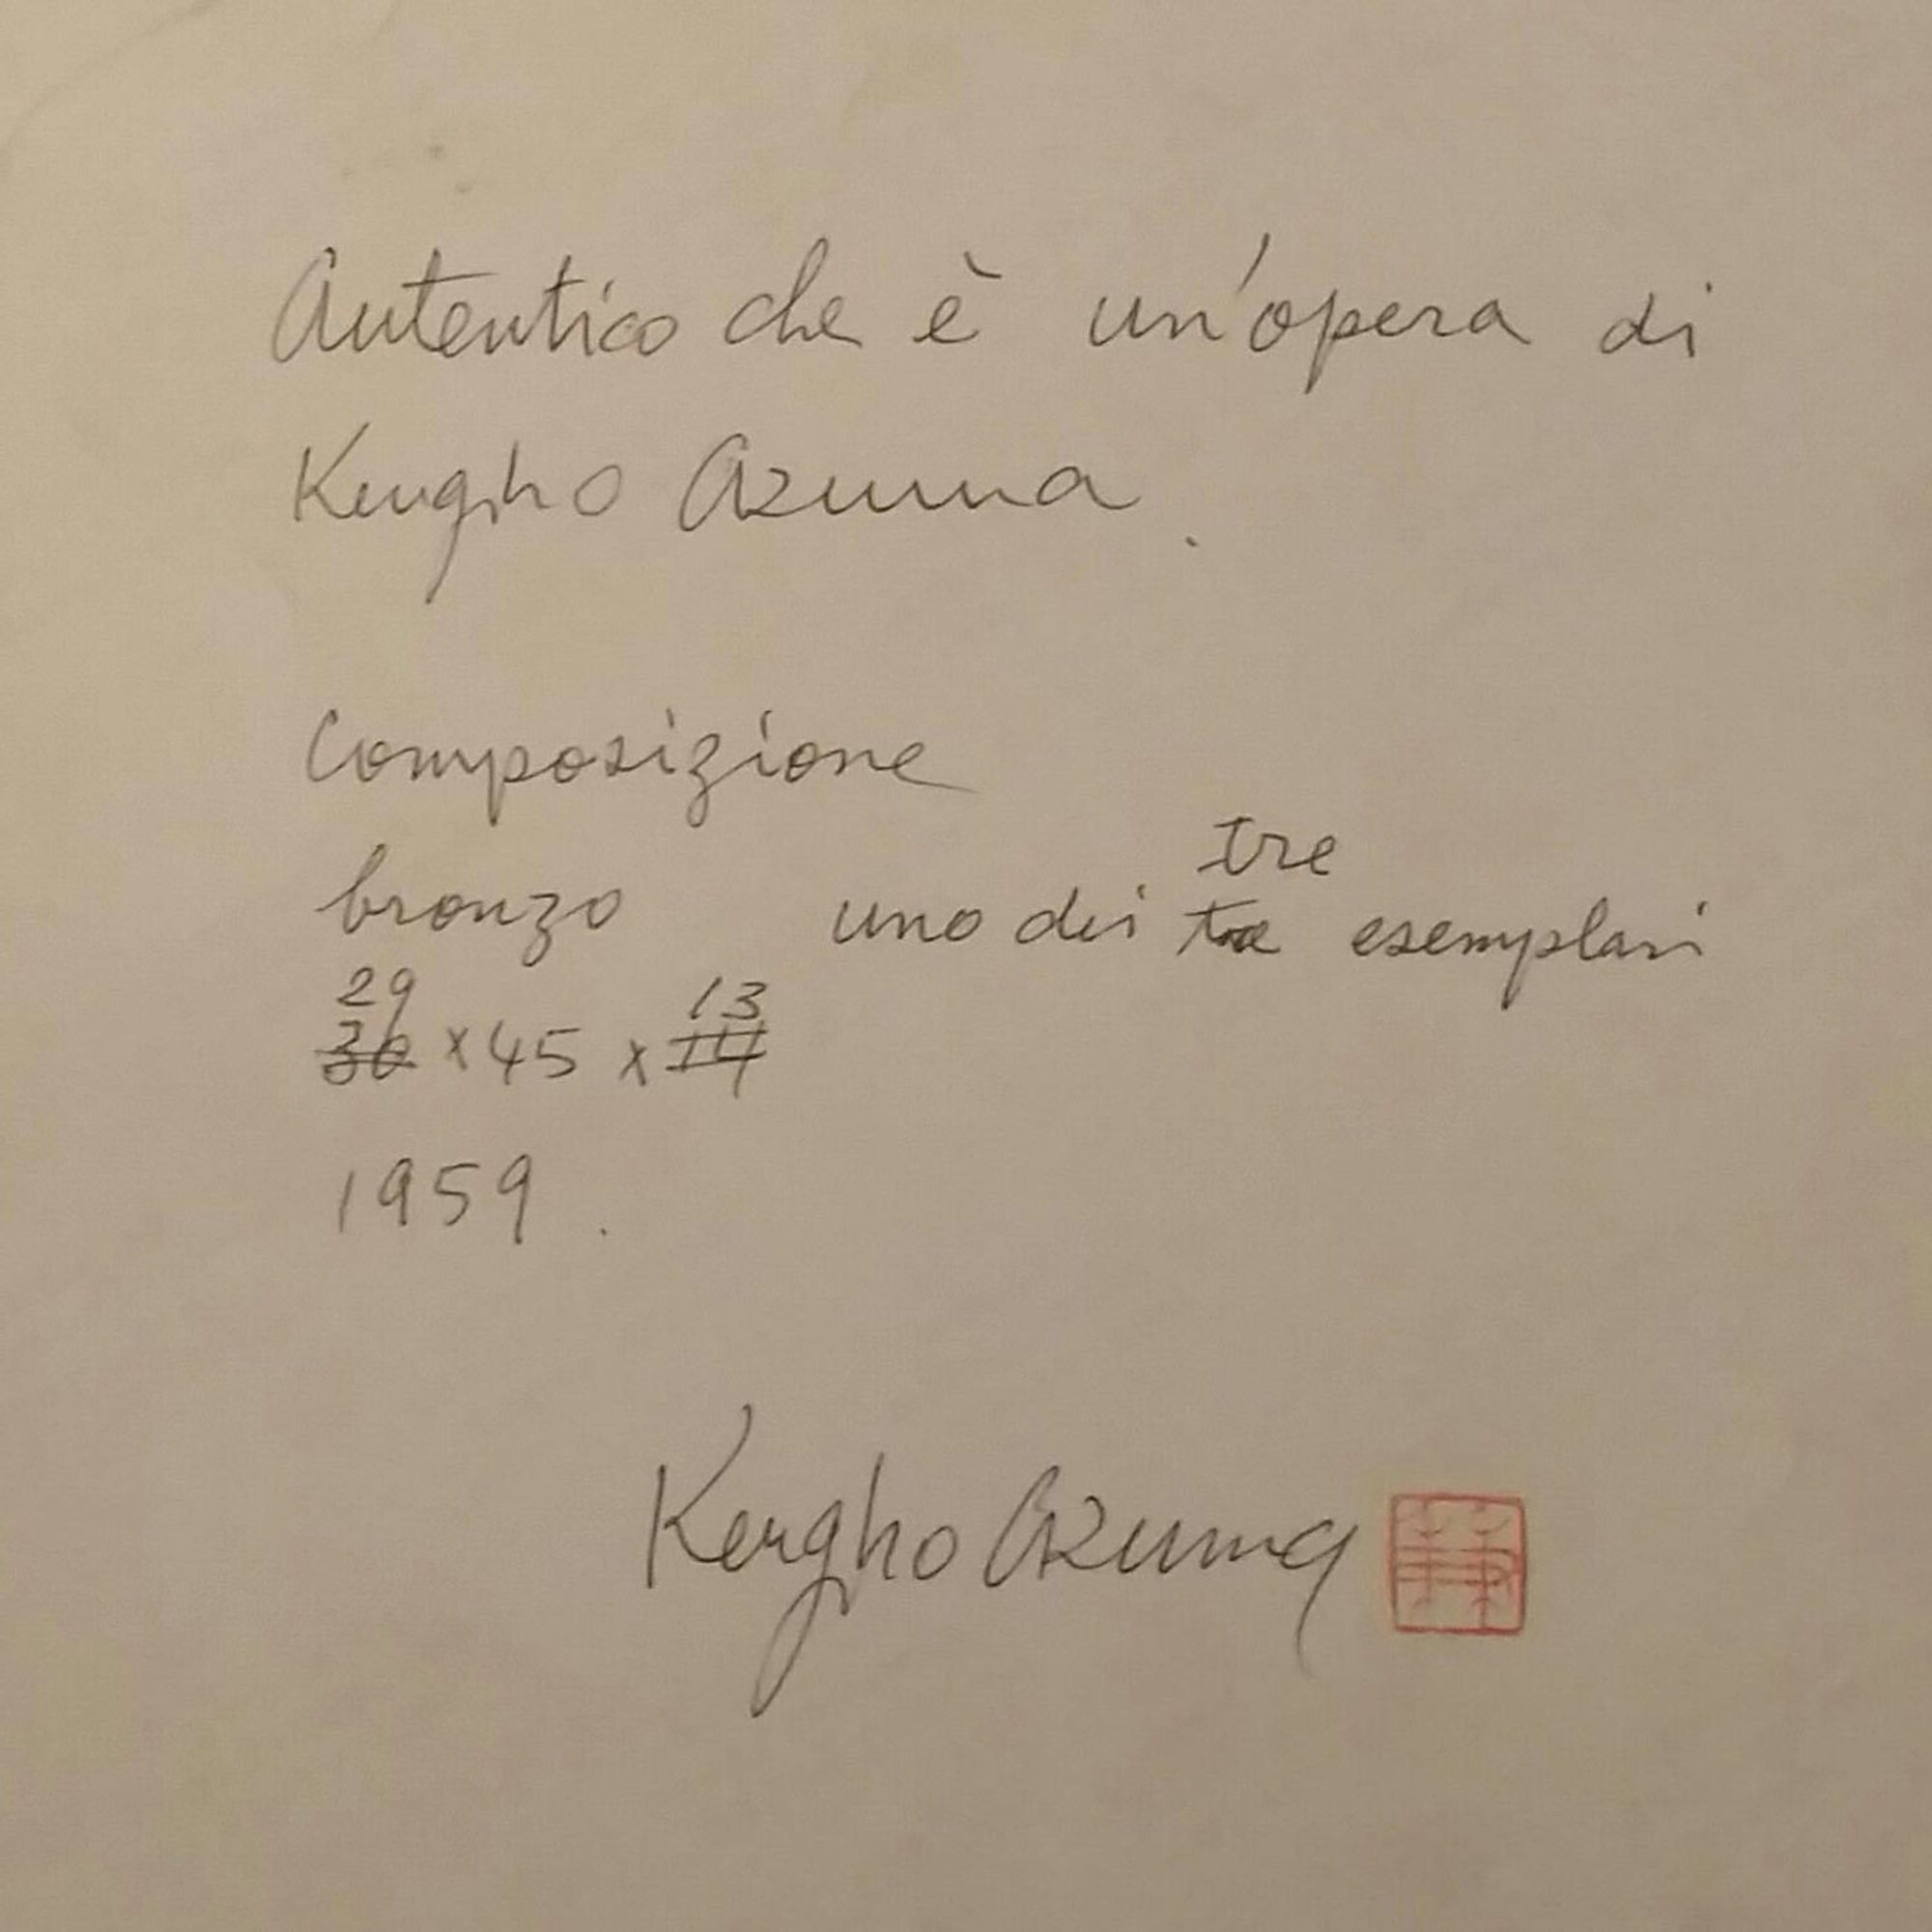 Autentico che è un'opera di
Kengiho Azuma.
Composizione
bronzo uno dei tre esemplari
29 x 45 x 13
1959.
Kengho Azuma